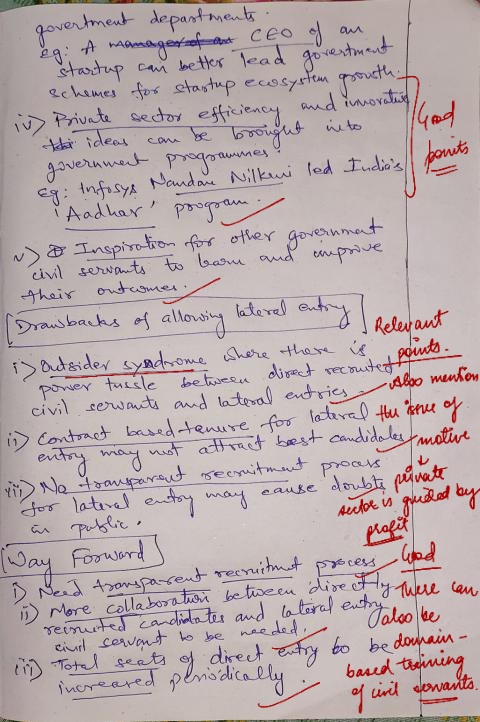 government departments.
eg: A manager of an CEO of an
startup can better lead government
schemes for startup ecosystem growth.
iv) Private sector efficiency and innovative
ideas can be brought into
government programmes.
eg: Infosys Nandan Nilkeni led India's
'Aadhar' program.
Good
points
v) Inspiration for other government
civil servants to learn and improve
their outcomes.
Drawbacks of allowing lateral entry
Relevant
points.
i) Outsider syndrome where there is
power tussle between direct recruited
civil servants and lateral entries.
Also mention
the issue of
motive
↓
private
sector is guided by
profit
ii) Contract based tenure for lateral
entry may not attract best candidates
iii) No transparent recruitment process
for lateral entry may cause doubts
in public.
Way Forward
i) Need transparent recruitment process
Good
ii) More collaboration between directly
recruited candidates and lateral entry
civil servant to be needed.
iii) Total seats of direct entry to be
increased periodically.
There can
also be
domain-
based training
of civil servants.